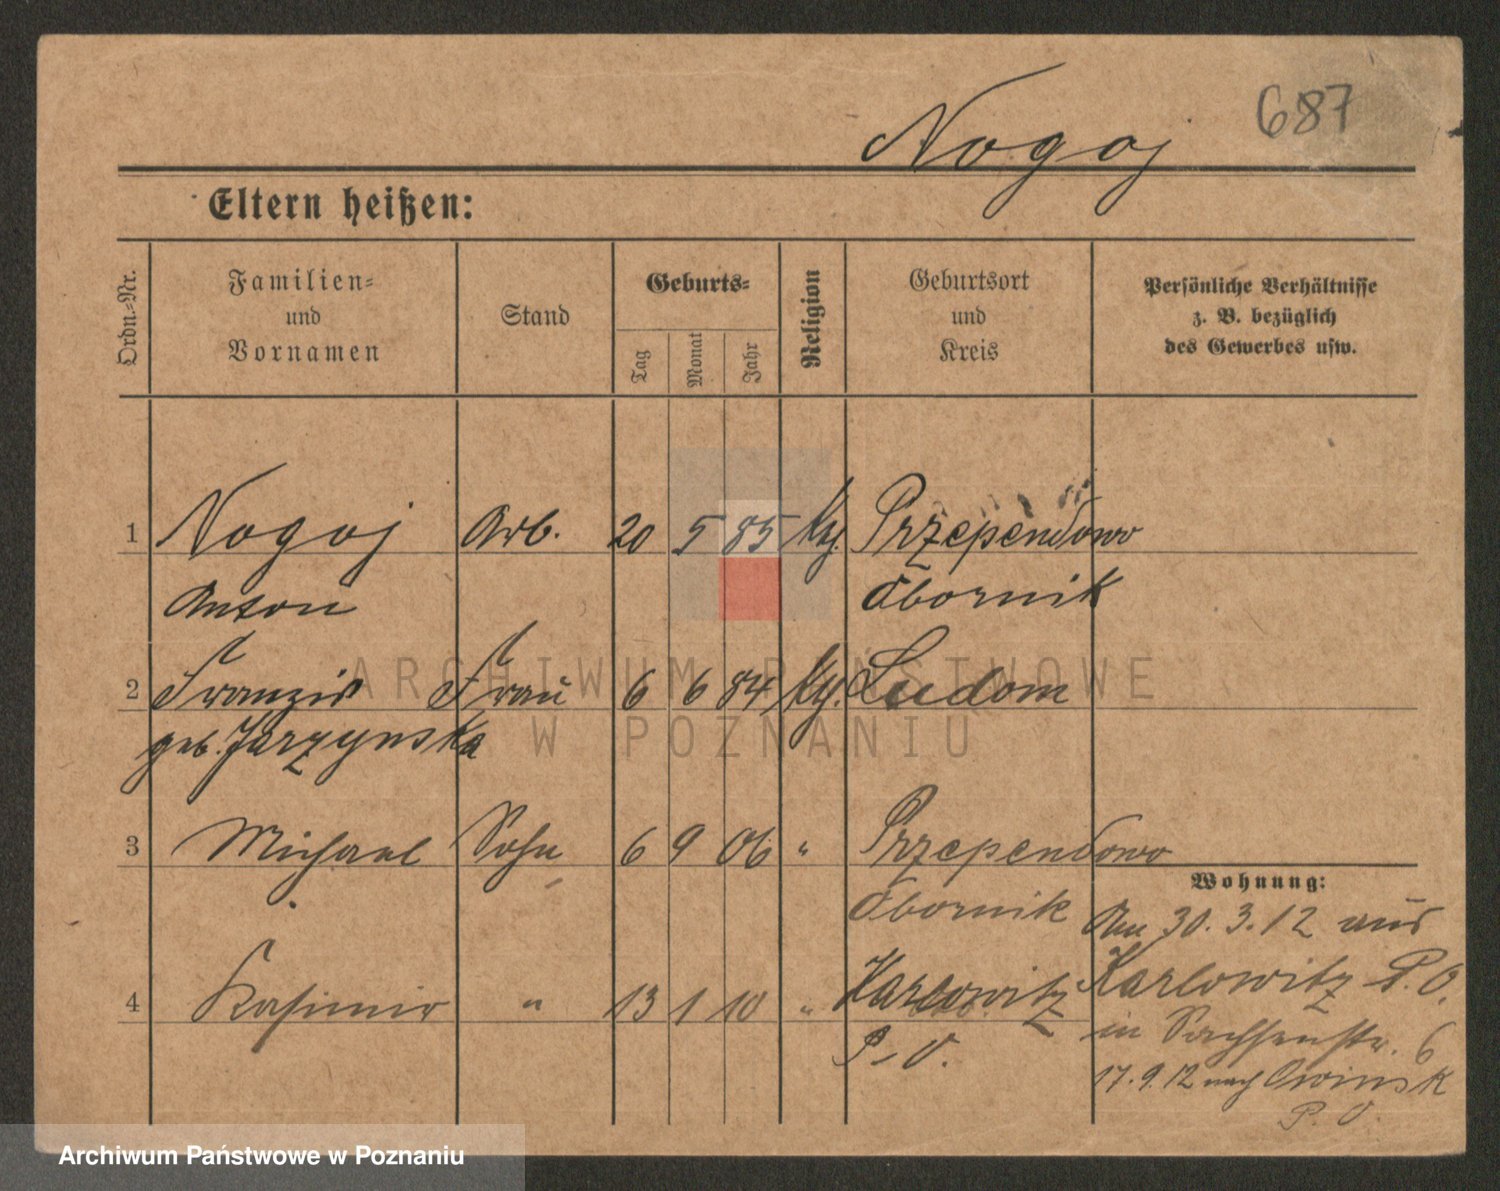 687
Nogoj
Eltern heißen:
Ordn.-Nr.
Familien-
und
Vornamen
Stand
Geburts-
Tag
Monat
Jahr
Religion
Geburtsort
und
Kreis
Persönliche Verhältnisse
z. B. bezüglich
des Gewerbes usw.
1 Nogoj Arb. 20 5 85 Przependowo
Anton Obornik
2 Franzis Frau 6 6 84 Ludom
geb. Jarzynska
3 Michael Sohn 6 9 06 " Przependowo
Obornik
4 Kasimir " 13 1 10 " Karlowitz
P. O.
Wohnung:
Am 30.3.12 aus
Karlowitz P. O.
in Sachsenstr. 6
17.9.12 nach Owinsk
P. O.
ARCHIWUM PAŃSTWOWE
W POZNANIU
Archiwum Państwowe w Poznaniu